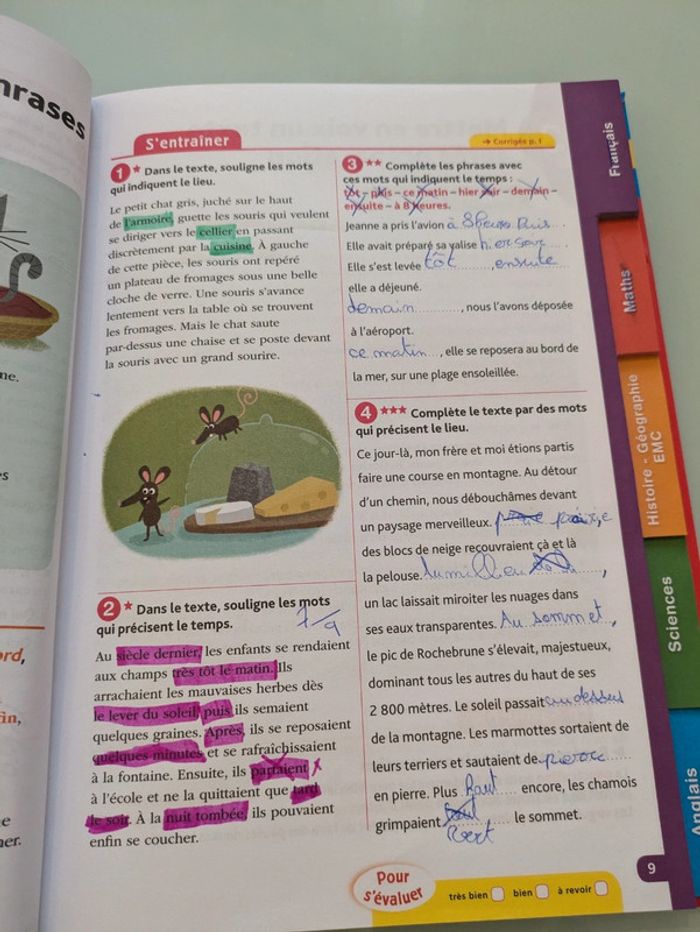 hrases
S'entraîner
→ Corrigés p. 1
1 * Dans le texte, souligne les mots
qui indiquent le lieu.
Le petit chat gris, juché sur le haut
de l'armoire, guette les souris qui veulent
se diriger vers le cellier en passant
discrètement par la cuisine. À gauche
de cette pièce, les souris ont repéré
un plateau de fromages sous une belle
cloche de verre. Une souris s'avance
lentement vers la table où se trouvent
les fromages. Mais le chat saute
par-dessus une chaise et se poste devant
la souris avec un grand sourire.
2 * Dans le texte, souligne les mots
qui précisent le temps.
7/9
Au siècle dernier, les enfants se rendaient
aux champs très tôt le matin. Ils
arrachaient les mauvaises herbes dès
le lever du soleil, puis ils semaient
quelques graines. Après, ils se reposaient
quelques minutes et se rafraîchissaient
à la fontaine. Ensuite, ils partaient
à l'école et ne la quittaient que tard
le soir. À la nuit tombée, ils pouvaient
enfin se coucher.
3 ** Complète les phrases avec
ces mots qui indiquent le temps :
tôt – puis – ce matin – hier soir – demain –
ensuite – à 8 heures.
Jeanne a pris l'avion à 8 heures Puis.
Elle avait préparé sa valise hier soir.
Elle s'est levée tôt, ensuite
elle a déjeuné.
demain, nous l'avons déposée
à l'aéroport.
ce matin, elle se reposera au bord de
la mer, sur une plage ensoleillée.
4 *** Complète le texte par des mots
qui précisent le lieu.
Ce jour-là, mon frère et moi étions partis
faire une course en montagne. Au détour
d'un chemin, nous débouchâmes devant
un paysage merveilleux.
des blocs de neige recouvraient çà et là
la pelouse. Au millieu,
un lac laissait miroiter les nuages dans
ses eaux transparentes. Au sommet,
le pic de Rochebrune s'élevait, majestueux,
dominant tous les autres du haut de ses
2 800 mètres. Le soleil passait au dessus
de la montagne. Les marmottes sortaient de
leurs terriers et sautaient de pierre
en pierre. Plus haut encore, les chamois
grimpaient le sommet.
Pour
s'évaluer
très bien
bien
à revoir
9
Français
Maths
Histoire - Géographie
EMC
Sciences
Anglais
ne.
s
ord,
fin,
e
ner.